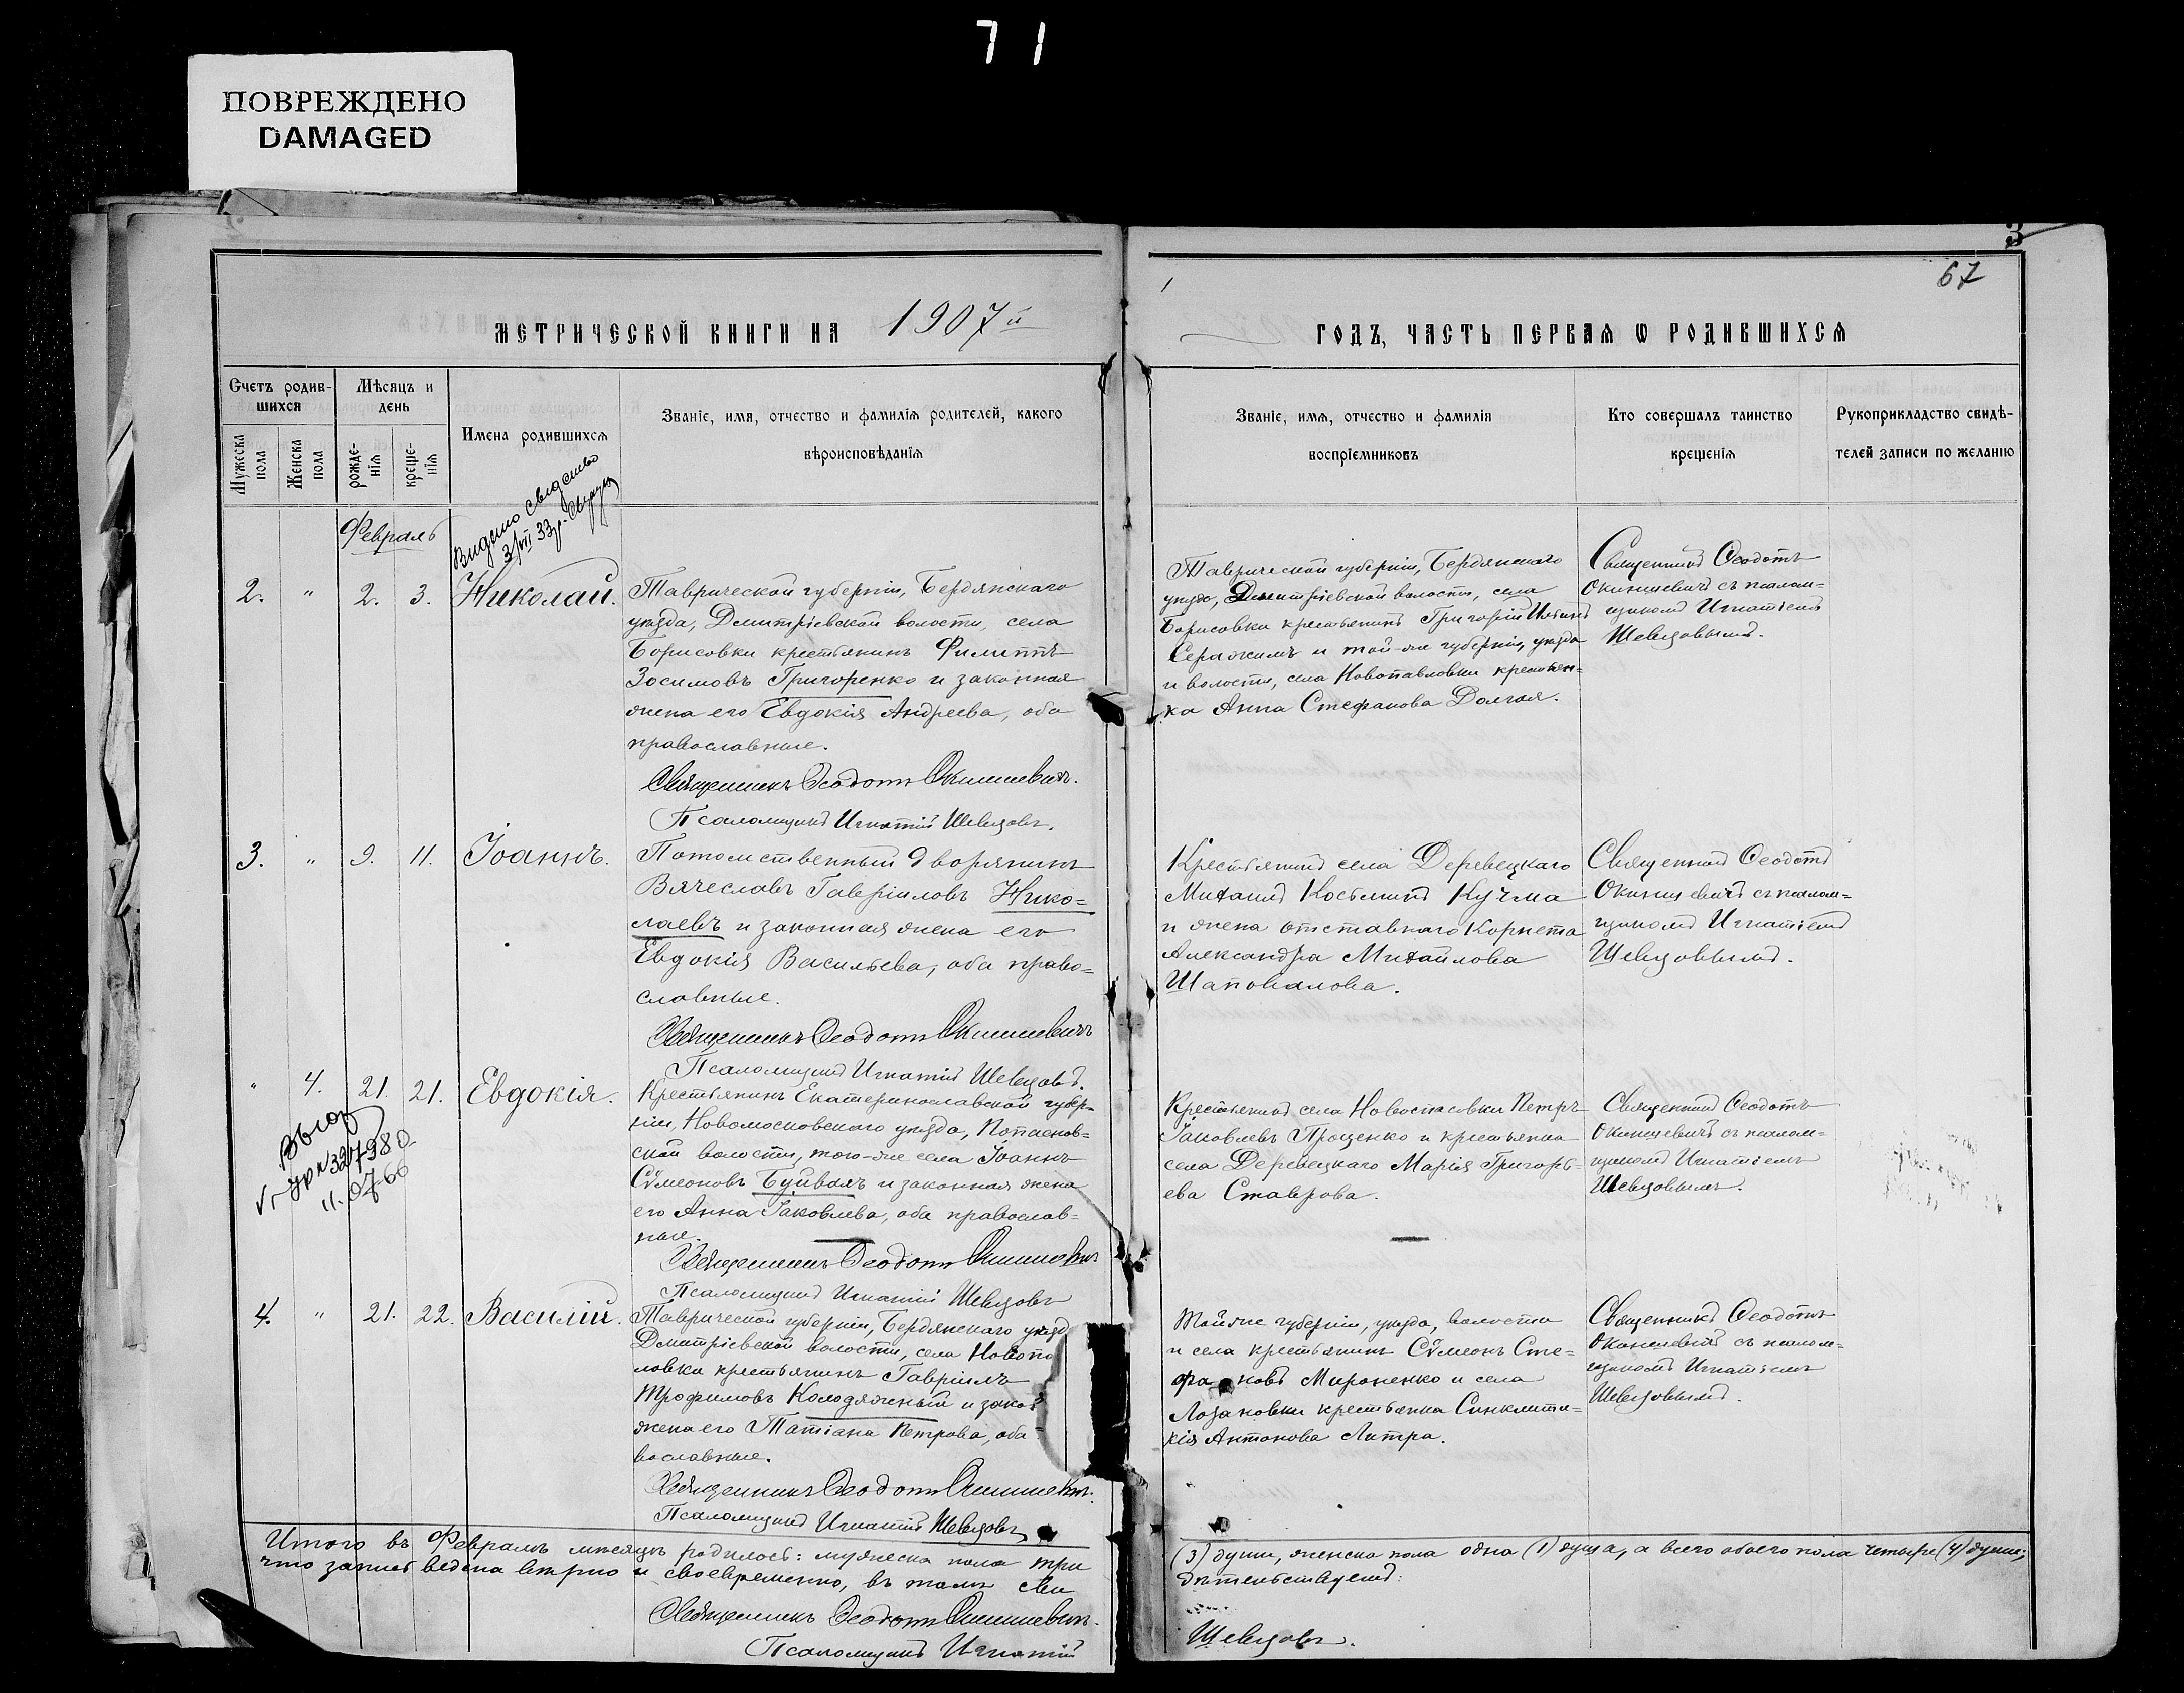 71
ПОВРЕЖДЕНО
DAMAGED
3
67
МЕТРИЧЕСКОЙ КНИГИ НА 1907й
ГОДЪ, ЧАСТЬ ПЕРВАЯ Ѡ РОДИВШИХСЯ
Счетъ родив-
шихся
Мѣсяцъ и
день
Имена родившихся
Званіе, имя, отчество и фамилія родителей, какого
вѣроисповѣданія
Мужеска
пола
Женска
пола
рожде-
нія
креще-
нія
Званіе, имя, отчество и фамилія
воспріемниковъ
Кто совершалъ таинство
крещенія
Рукоприкладство свидѣ-
телей записи по желанію
Февраль
Видано свідоцтво
3/VII 33р.
2. " 2. 3. Николай.
Таврической губерніи, Бердянскаго
уѣзда, Дмитріевской волости, села
Борисовки крестьянинъ Филиппъ
Зосимовъ Григоренко и законная
жена его Евдокія Андреева, оба
православные.
Священникъ Ѳеодотъ Окиншевичъ.
Псаломщикъ Игнатій Шевцовъ.
Таврической губерніи, Бердянскаго
уѣзда, Дмитріевской волости, села
Борисовки крестьянинъ Григорій
и той-же губерніи, уѣзда
и волости, села Новопавловки крестьян-
ка Анна Стефанова Долгая.
Священникъ Ѳеодотъ
Окиншевичъ съ псалом-
щикомъ Игнатіемъ
Шевцовымъ.
3. " 9. 11. Іоаннъ.
Потомственный дворянинъ
Вячеславъ Гавріиловъ Нико-
лаевъ и законная жена его
Евдокія Васильева, оба право-
славные.
Священникъ Ѳеодотъ Окиншевичъ
Псаломщикъ Игнатій Шевцовъ.
Крестьянинъ села Деревецкаго
Михаилъ Косьминъ Кучма
и жена отставнаго Корнета
Александра Михайлова
Шаповалова.
Священникъ Ѳеодотъ
Окиншевичъ съ псалом-
щикомъ Игнатіемъ
Шевцовымъ.
" 4. 21. 21. Евдокія.
11.07.66
Крестьянинъ Екатеринославской губер-
ніи, Новомосковскаго уѣзда, Попаснов-
ской волости, того-же села Іоаннъ
Сѵмеоновъ Буйвалъ и законная жена
его Анна Іаковлева, оба православ-
ные.
Священникъ Ѳеодотъ Окиншевичъ
Псаломщикъ Игнатій Шевцовъ
Крестьянинъ села Новоспасовки Петръ
Іаковлевъ Проценко и крестьянка
села Деревецкаго Марія Григорь-
ева Ставрова.
Священникъ Ѳеодотъ
Окиншевичъ съ псалом-
щикомъ Игнатіемъ
Шевцовымъ.
4. " 21. 22. Василій.
Таврической губерніи, Бердянскаго уѣзд
Дмитріевской волости, села Новопа
ловки крестьянинъ Гавріилъ
Трофимовъ Колодяжный и закон
жена его Татіана Петрова, оба
вославные.
Священникъ Ѳеодотъ Окиншевичъ.
Псаломщикъ Игнатій Шевцовъ
Той же губерніи, уѣзда, волости
и села крестьянинъ Сѵмеонъ Сте-
фановъ Мироненко и села
Лозановки крестьянка Синклити-
кія Антонова Литра.
Священникъ Ѳеодотъ
Окиншевичъ съ псалом-
щикомъ Игнатіемъ
Шевцовымъ.
Итого въ Февралѣ мѣсяцѣ родилось: мужеска пола три (3) души, женска пола одна (1) душа, а всего обоего пола четыре (4) души;
что запись ведена вѣрно и своевременно, въ томъ сви дѣтельствуемъ:
Священникъ Ѳеодотъ Окиншевичъ.
Псаломщикъ Игнатій Шевцовъ.